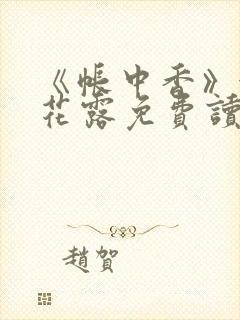 《帳中香》
花露免費讀
趙賀